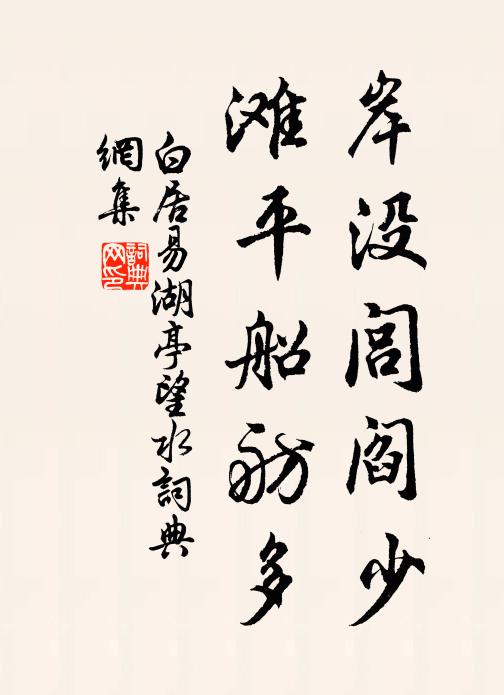 岸没闾阎少
滩平船舫多
白居易湖亭望水詞典
網集
詞典
网印